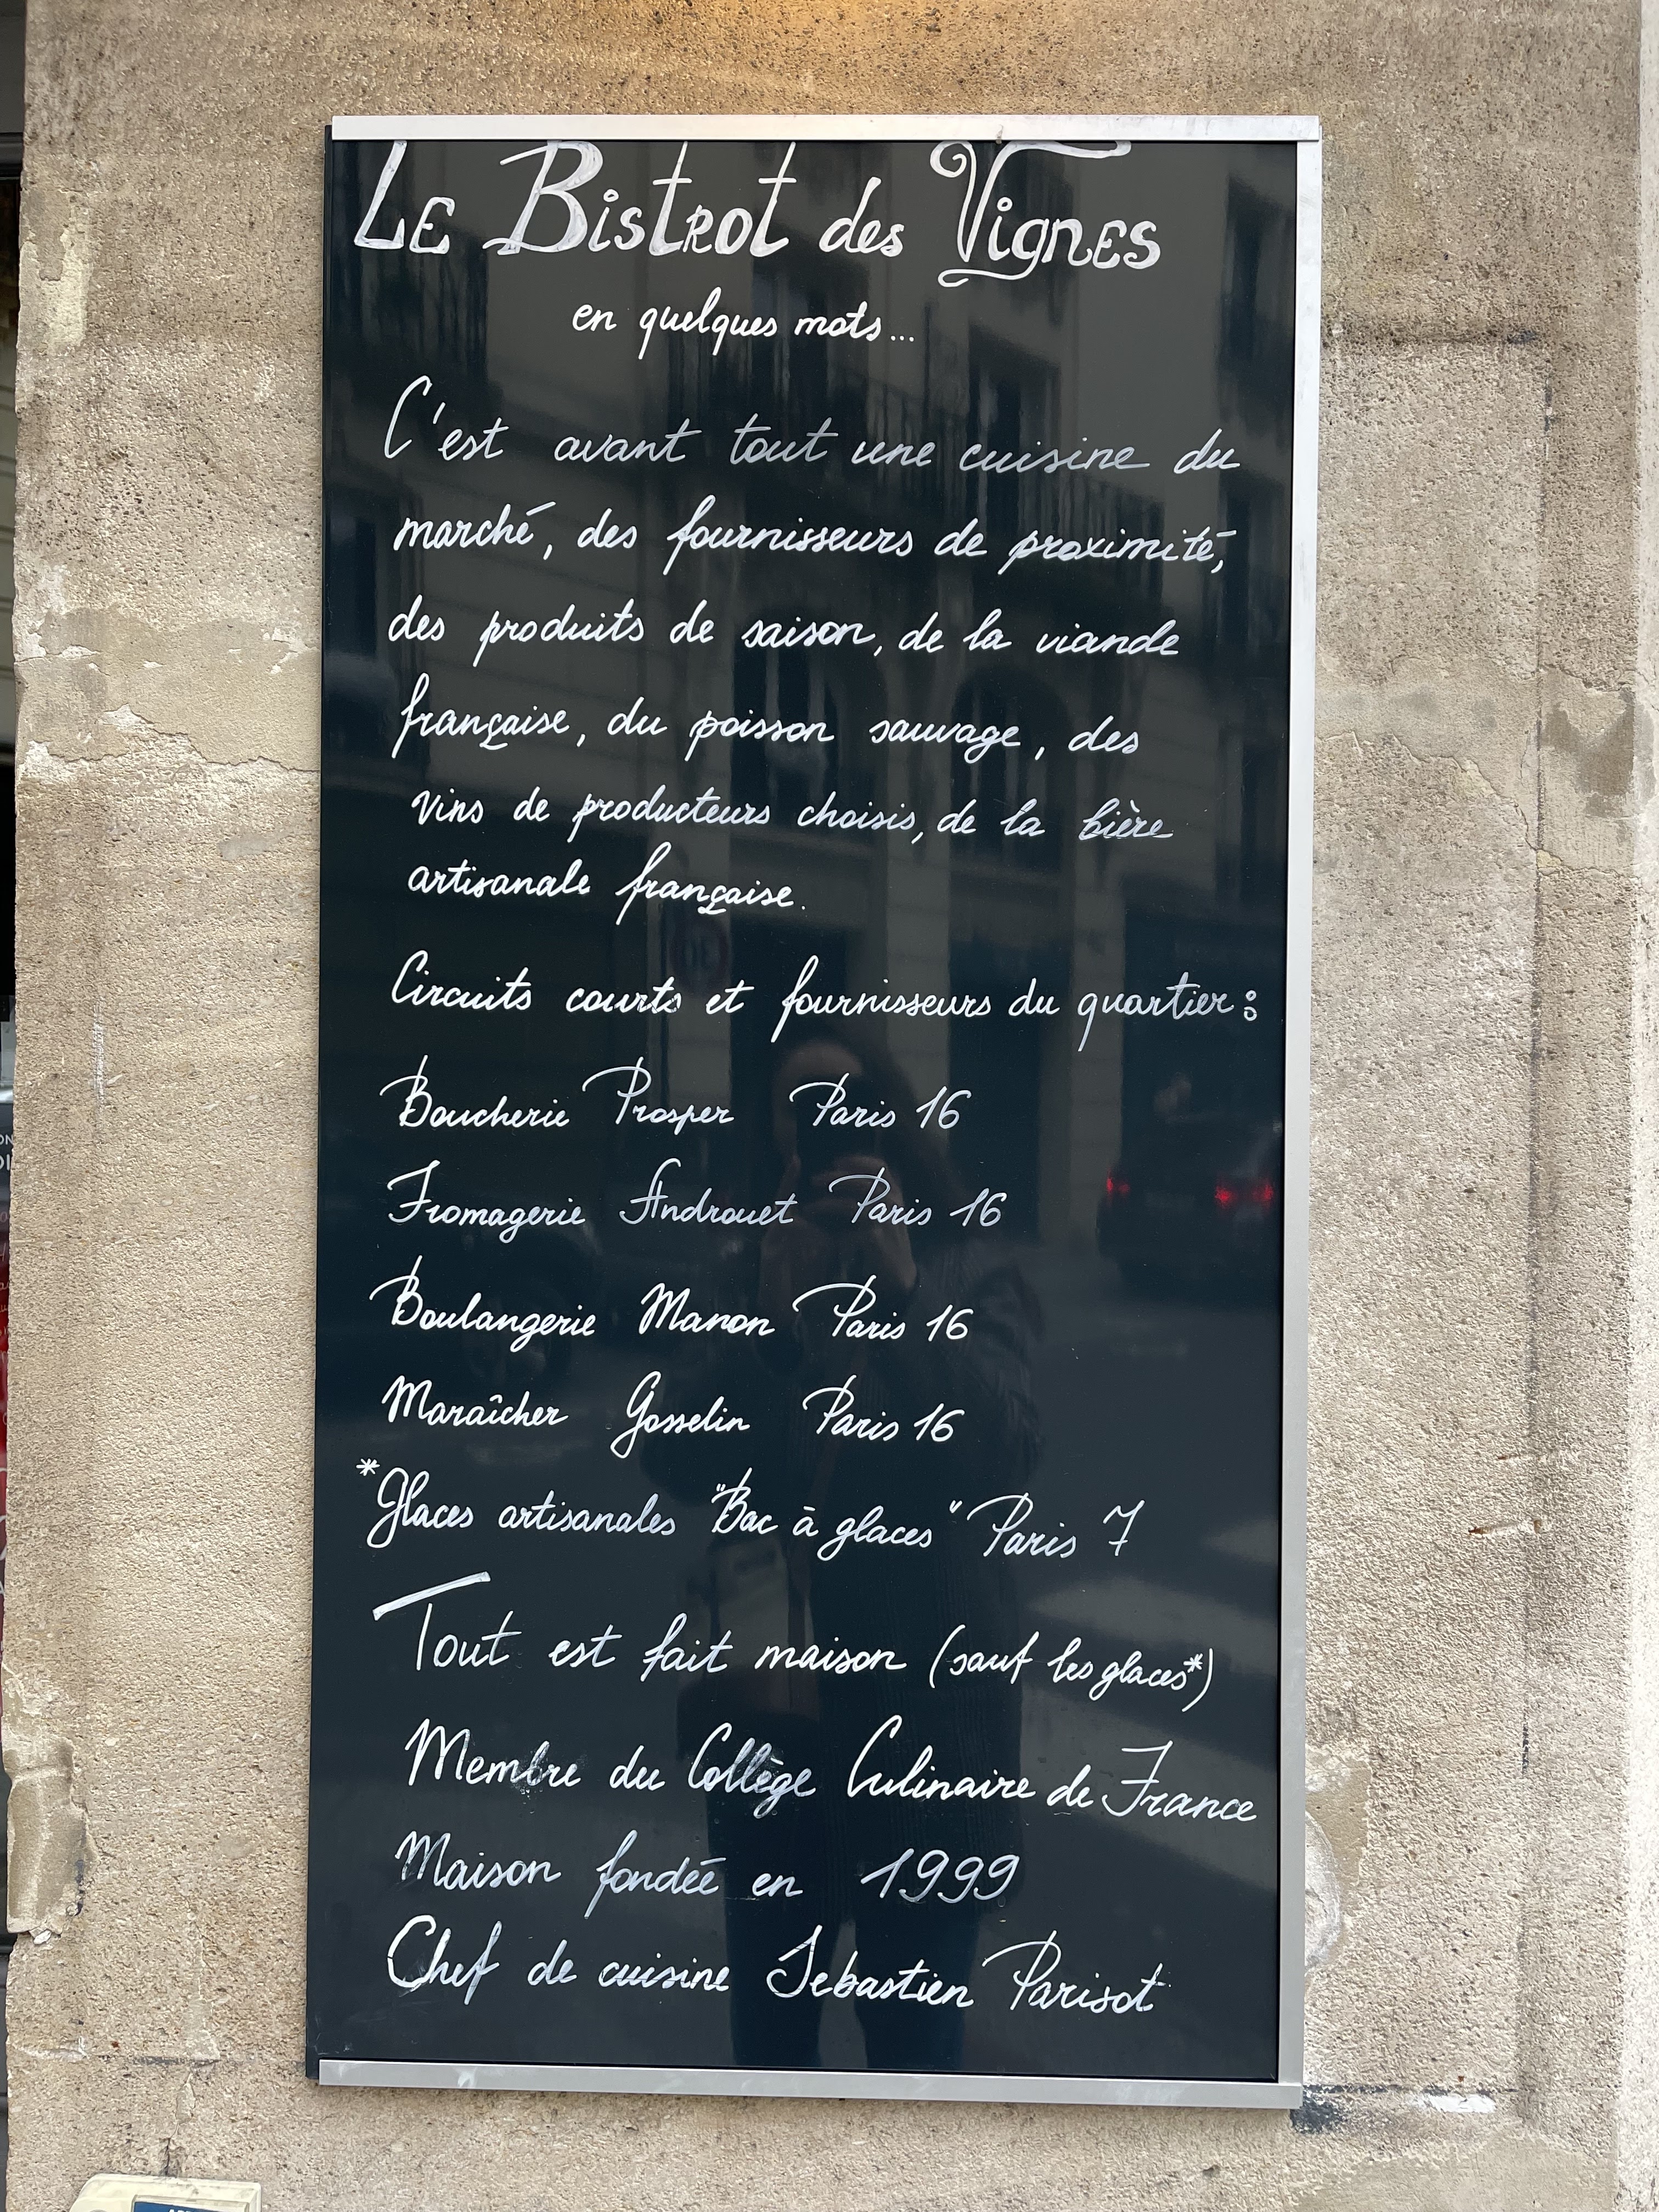 LE BISTROT des VIGNES
en quelques mots...
C'est avant tout une cuisine du
marché, des fournisseurs de proximité,
des produits de saison, de la viande
française, du poisson sauvage, des
vins de producteurs choisis, de la bière
artisanale française.
Circuits courts et fournisseurs du quartier :
Boucherie Prosper Paris 16
Fromagerie Androuet Paris 16
Boulangerie Manon Paris 16
Maraîcher Gosselin Paris 16
*Glaces artisanales "Bac à glaces" Paris 7
Tout est fait maison (sauf les glaces*)
Membre du Collège Culinaire de France
Maison fondée en 1999
Chef de cuisine Sebastien Parisot